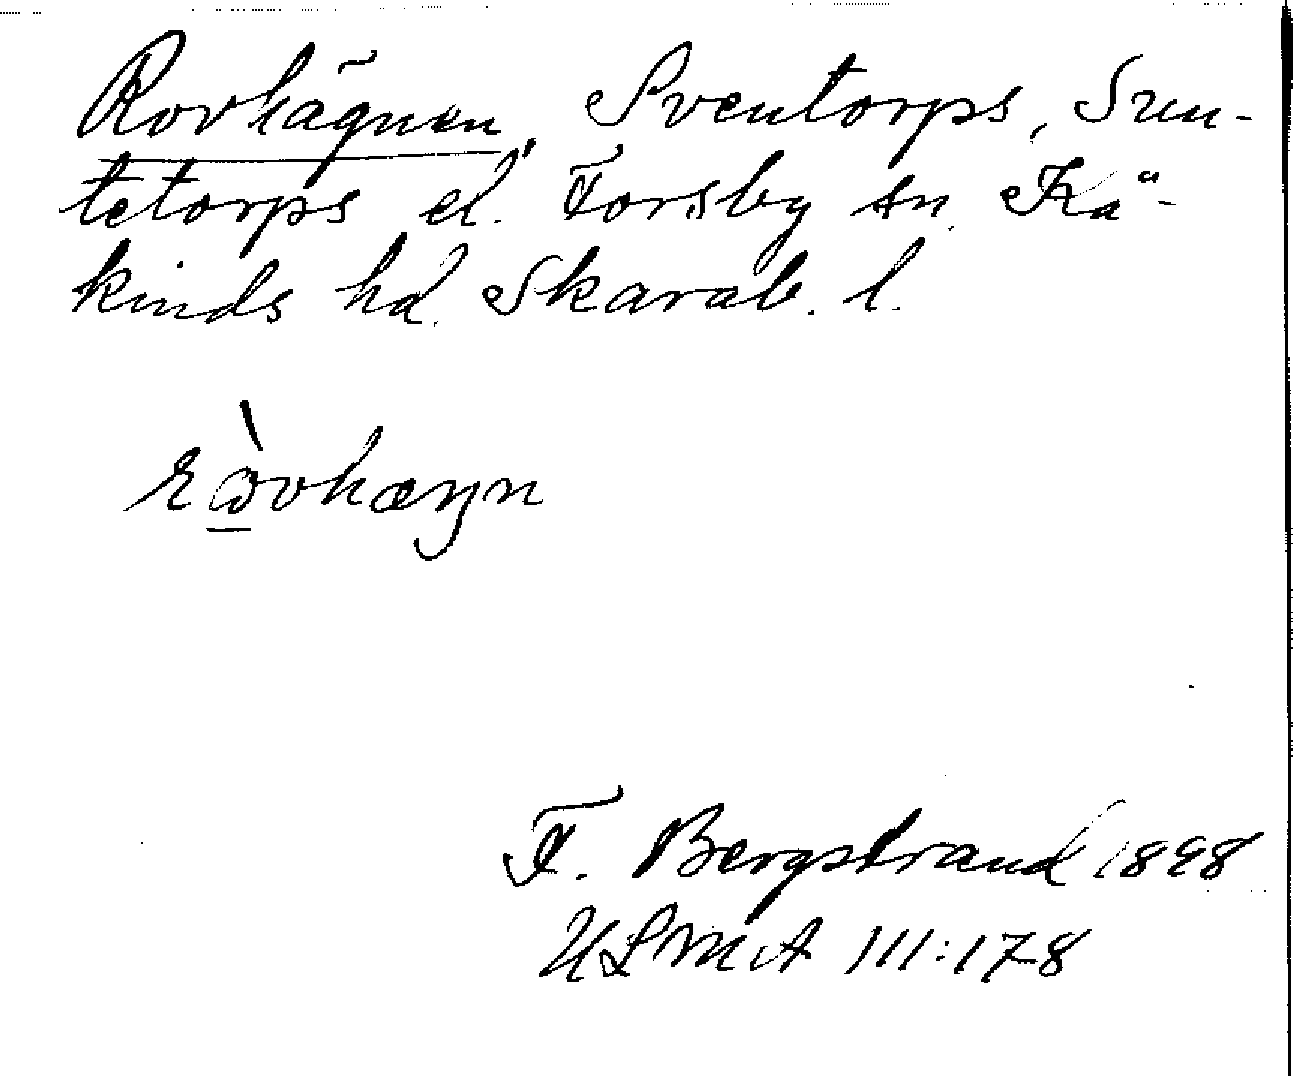 Rovhägnen, Sventorps, Sun-
tetorps el. Forsby sn. Kå-
kinds hd. Skarab. l.
F. Bergstrand 1898
ULMA 111:178